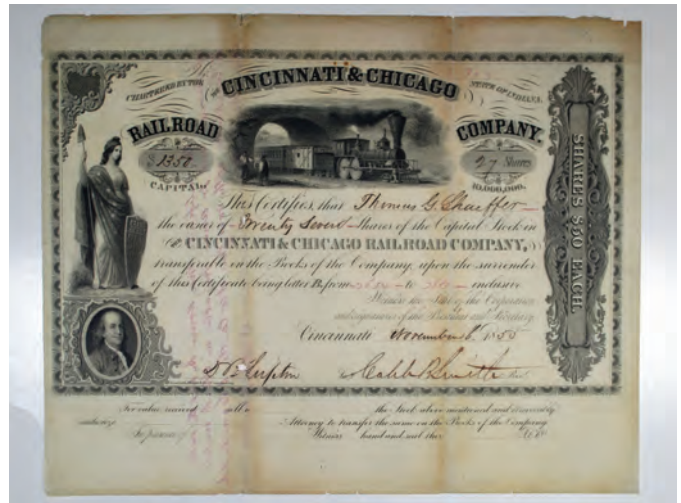 CHARTERED BY THE STATE OF INDIANA.
CINCINNATI & CHICAGO
RAILROAD COMPANY.
$1350 27 Shares
CAPITAL $2,000,000.
This Certifies, that Thomas G. Shaeffer
the owner of Twenty Seven Shares of the Capital Stock in
CINCINNATI & CHICAGO RAILROAD COMPANY,
transferable on the Books of the Company, upon the surrender
of this Certificate being letter B, from to inclusive
Witness the Seal of the Corporation
and signatures of the President and Secretary
Cincinnati November 8 1855
Caleb B Smith Pres.
SHARES $50 EACH.
For value received the Stock above mentioned and
Attorney to transfer the same on the Books of the Company.
In presence of Witness hand and seal this